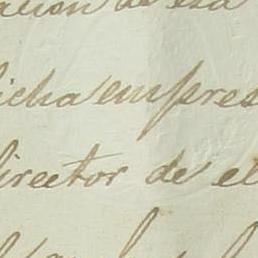 acion de esa
icha empres
irector de el